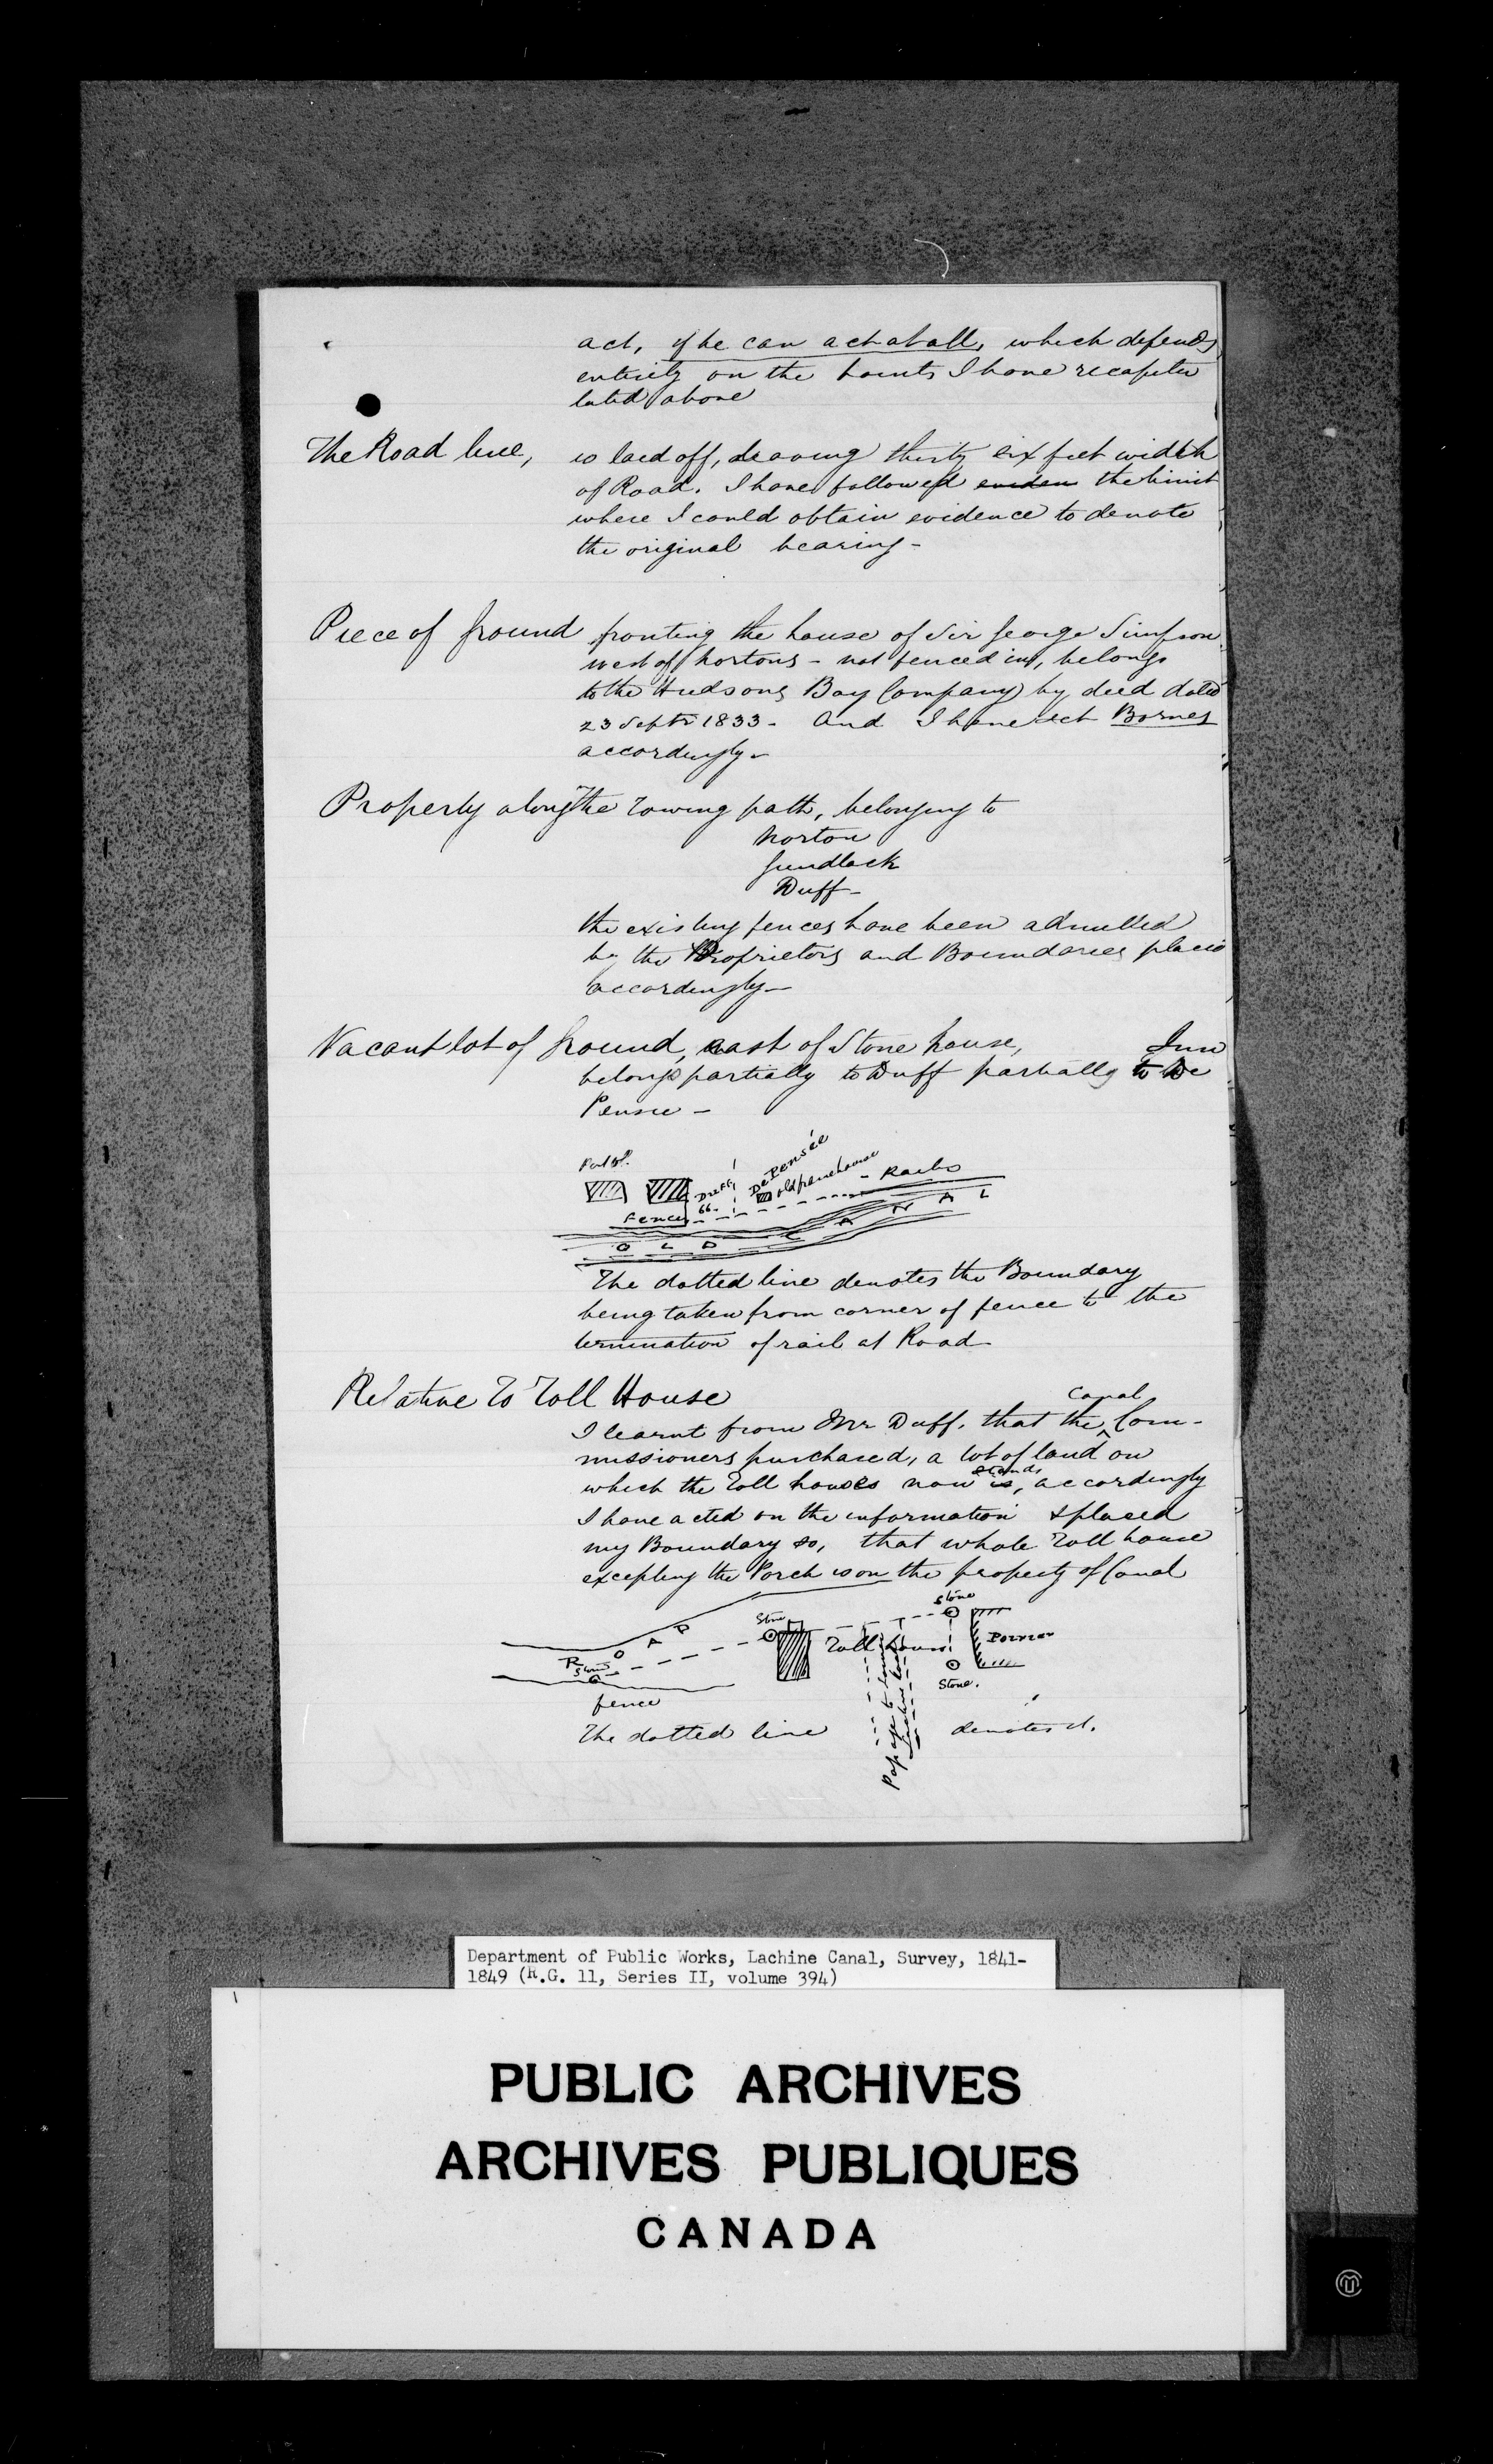 act, if he can act at all, which depends
entirely on the points I have recapitu
lated above
The Road line, is laid off, leaving thirty six feet width
of Road. I have followed eviden the limit
where I could obtain evidence to denote
the original bearing -
Piece of ground fronting the house of Sir George Simpson
west of Nortons - not fenced in, belongs
to the Hudsons Bay Company by deed dated
23 Septr 1833 - And I have set Bornes
accordingly -
Property along the Towing path, belonging to
Norton
Gundlack
Duff -
the existing fences have been admitted
by the Proprietors and Boundaries placed
accordingly -
Vacant lot of ground, east of Stone house, Inn
belongs partially to Duff partially to De
Pensie -
Duff
66
De Pensée
old farmhouse
Rails
Fence
OLD CANAL
The dotted line denotes the Boundary
being taken from corner of fence to the
termination of rail at Road
Relative To Toll House
I learnt from Mr Duff, that the Canal Com-
missioners purchased, a lot of land on
which the Toll houses now is, stands accordingly
I have acted on the information & placed
my Boundary so, that whole Toll house
excepting the Porch is on the property of Canal
Stone
Stone
ROAD
Toll house
Stone
Stone.
fence
Passage to
The dotted line denotes it.
Department of Public Works, Lachine Canal, Survey, 1841-
1849 (R.G. 11, Series II, volume 394)
PUBLIC ARCHIVES
ARCHIVES PUBLIQUES
CANADA